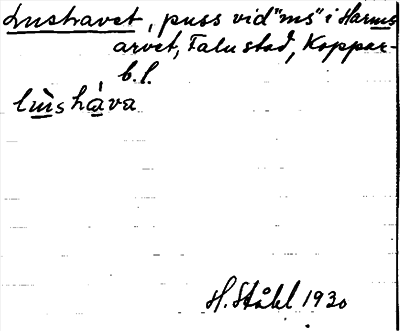 Lushavet, puss vid "ms" i Harms
arvet, Falu stad, Koppar-
b. l.
lùshàva
H. Ståhl 1930